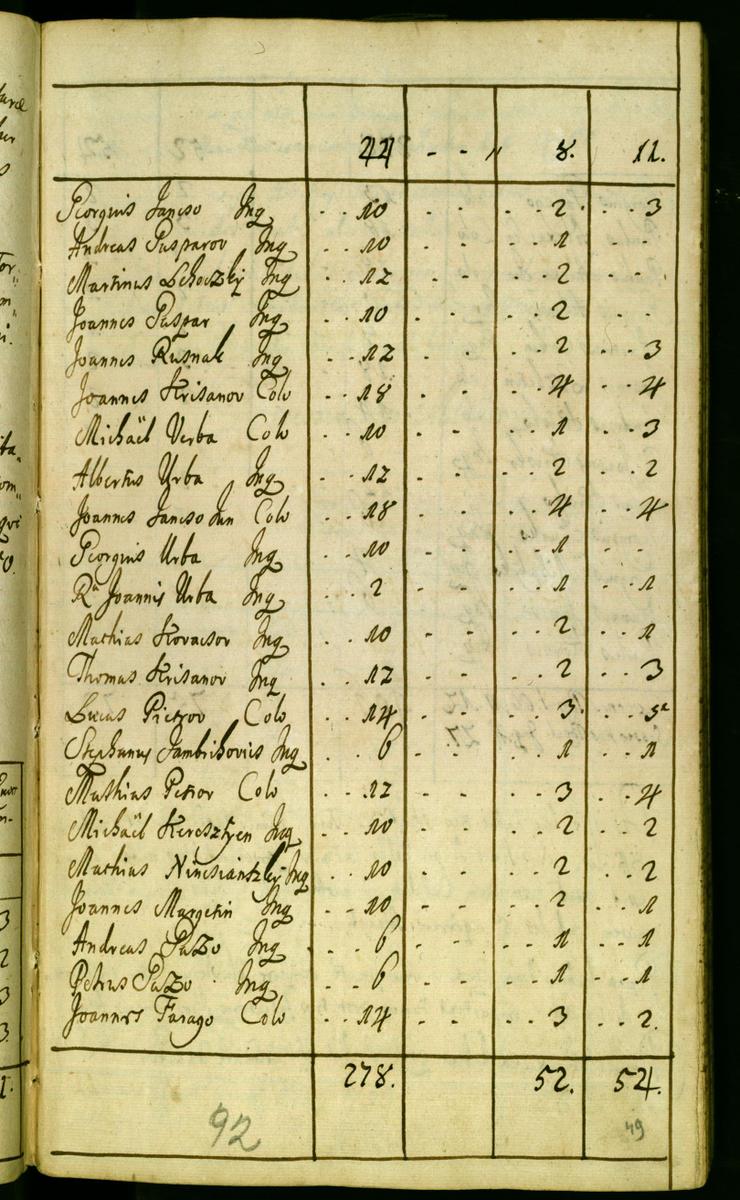 44 - - " 8. 11.
Georgius Jancso Inq - - 10 - - - - 2 - - 3
Andreas Gasparov Inq - - 10 - - - - 1 - -
Martinus Lehoczky Inq - - 12 - - - - 2 - -
Joannes Gaspar Inq - - 10 - - - - 2 - -
Joannes Rusnak Inq - - 12 - - - - 2 - - 3
Joannes Krisanov Colo - - 18 - - - - 4 - - 4
Michaël Verba Colo - - 10 - - - - 1 - - 3
Albertus Urba Inq - - 12 - - - - 2 - - 2
Joannes Jancso Jun Colo - - 18 - - - - 4 - - 4
Georgius Urba Inq - - 10 - - - - 1 - -
Ra Joannis Urba Inq - - 2 - - - - 1 - - 1
Mathias Kovacsov Inq - - 10 - - - - 2 - - 1
Thomas Krisanov Inq - - 12 - - - - 2 - - 3
Lucas Pietrov Colo - - 14 - - - - 3 - - 5
Stephanus Jambrihovics Inq - - 6 - - - - 1 - - 1
Mathias Petrov Colo - - 12 - - - - 3 - - 4
Michaël Keresztyen Inq - - 10 - - - - 2 - - 2
Mathias Inq - - 10 - - - - 2 - - 2
Joannes Margetin Inq - - 10 - - - - 2 - - 1
Andreas Pazo Inq - - 6 - - - - 1 - - 1
Petrus Pazo Inq - - 6 - - - - 1 - - 1
Joannes Farago Colo - - 14 - - - - 3 - - 2.
278. 52. 54.
92 49